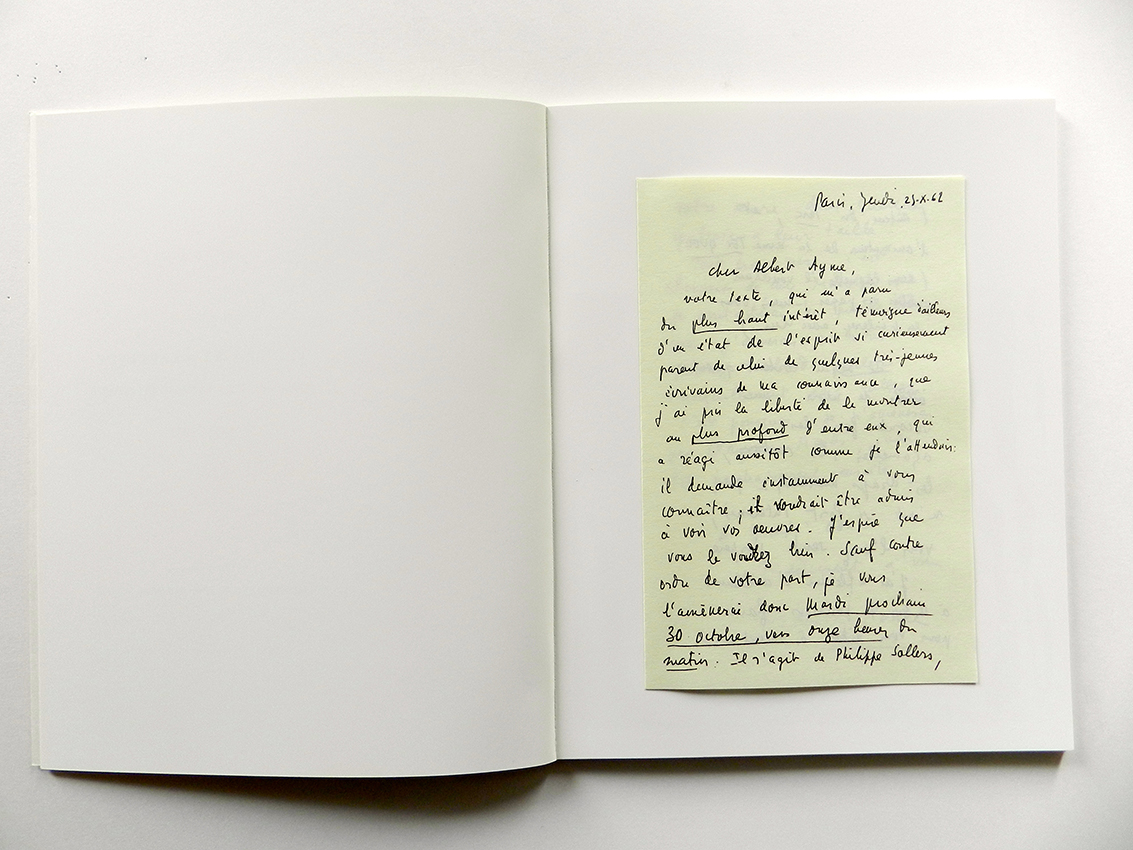 Paris, Jeudi, 25-X-62
cher Albert Ayme,
votre texte, qui m'a paru
du plus haut intérêt, témoigne d'ailleurs
d'un état de l'esprit si curieusement
parent de celui de quelques très-jeunes
écrivains de ma connaissance, que
j'ai pris la liberté de le montrer
au plus profond d'entre eux, qui
a réagi aussitôt comme je l'attendais:
il demande instamment à vous
connaître; il voudrait être admis
à voir vos oeuvres. J'espère que
vous le voudrez bien. Sauf contre
ordre de votre part, je vous
l'amènerai donc Mardi prochain
30 octobre, vers onze heures du
matin. Il s'agit de Philippe Sollers,